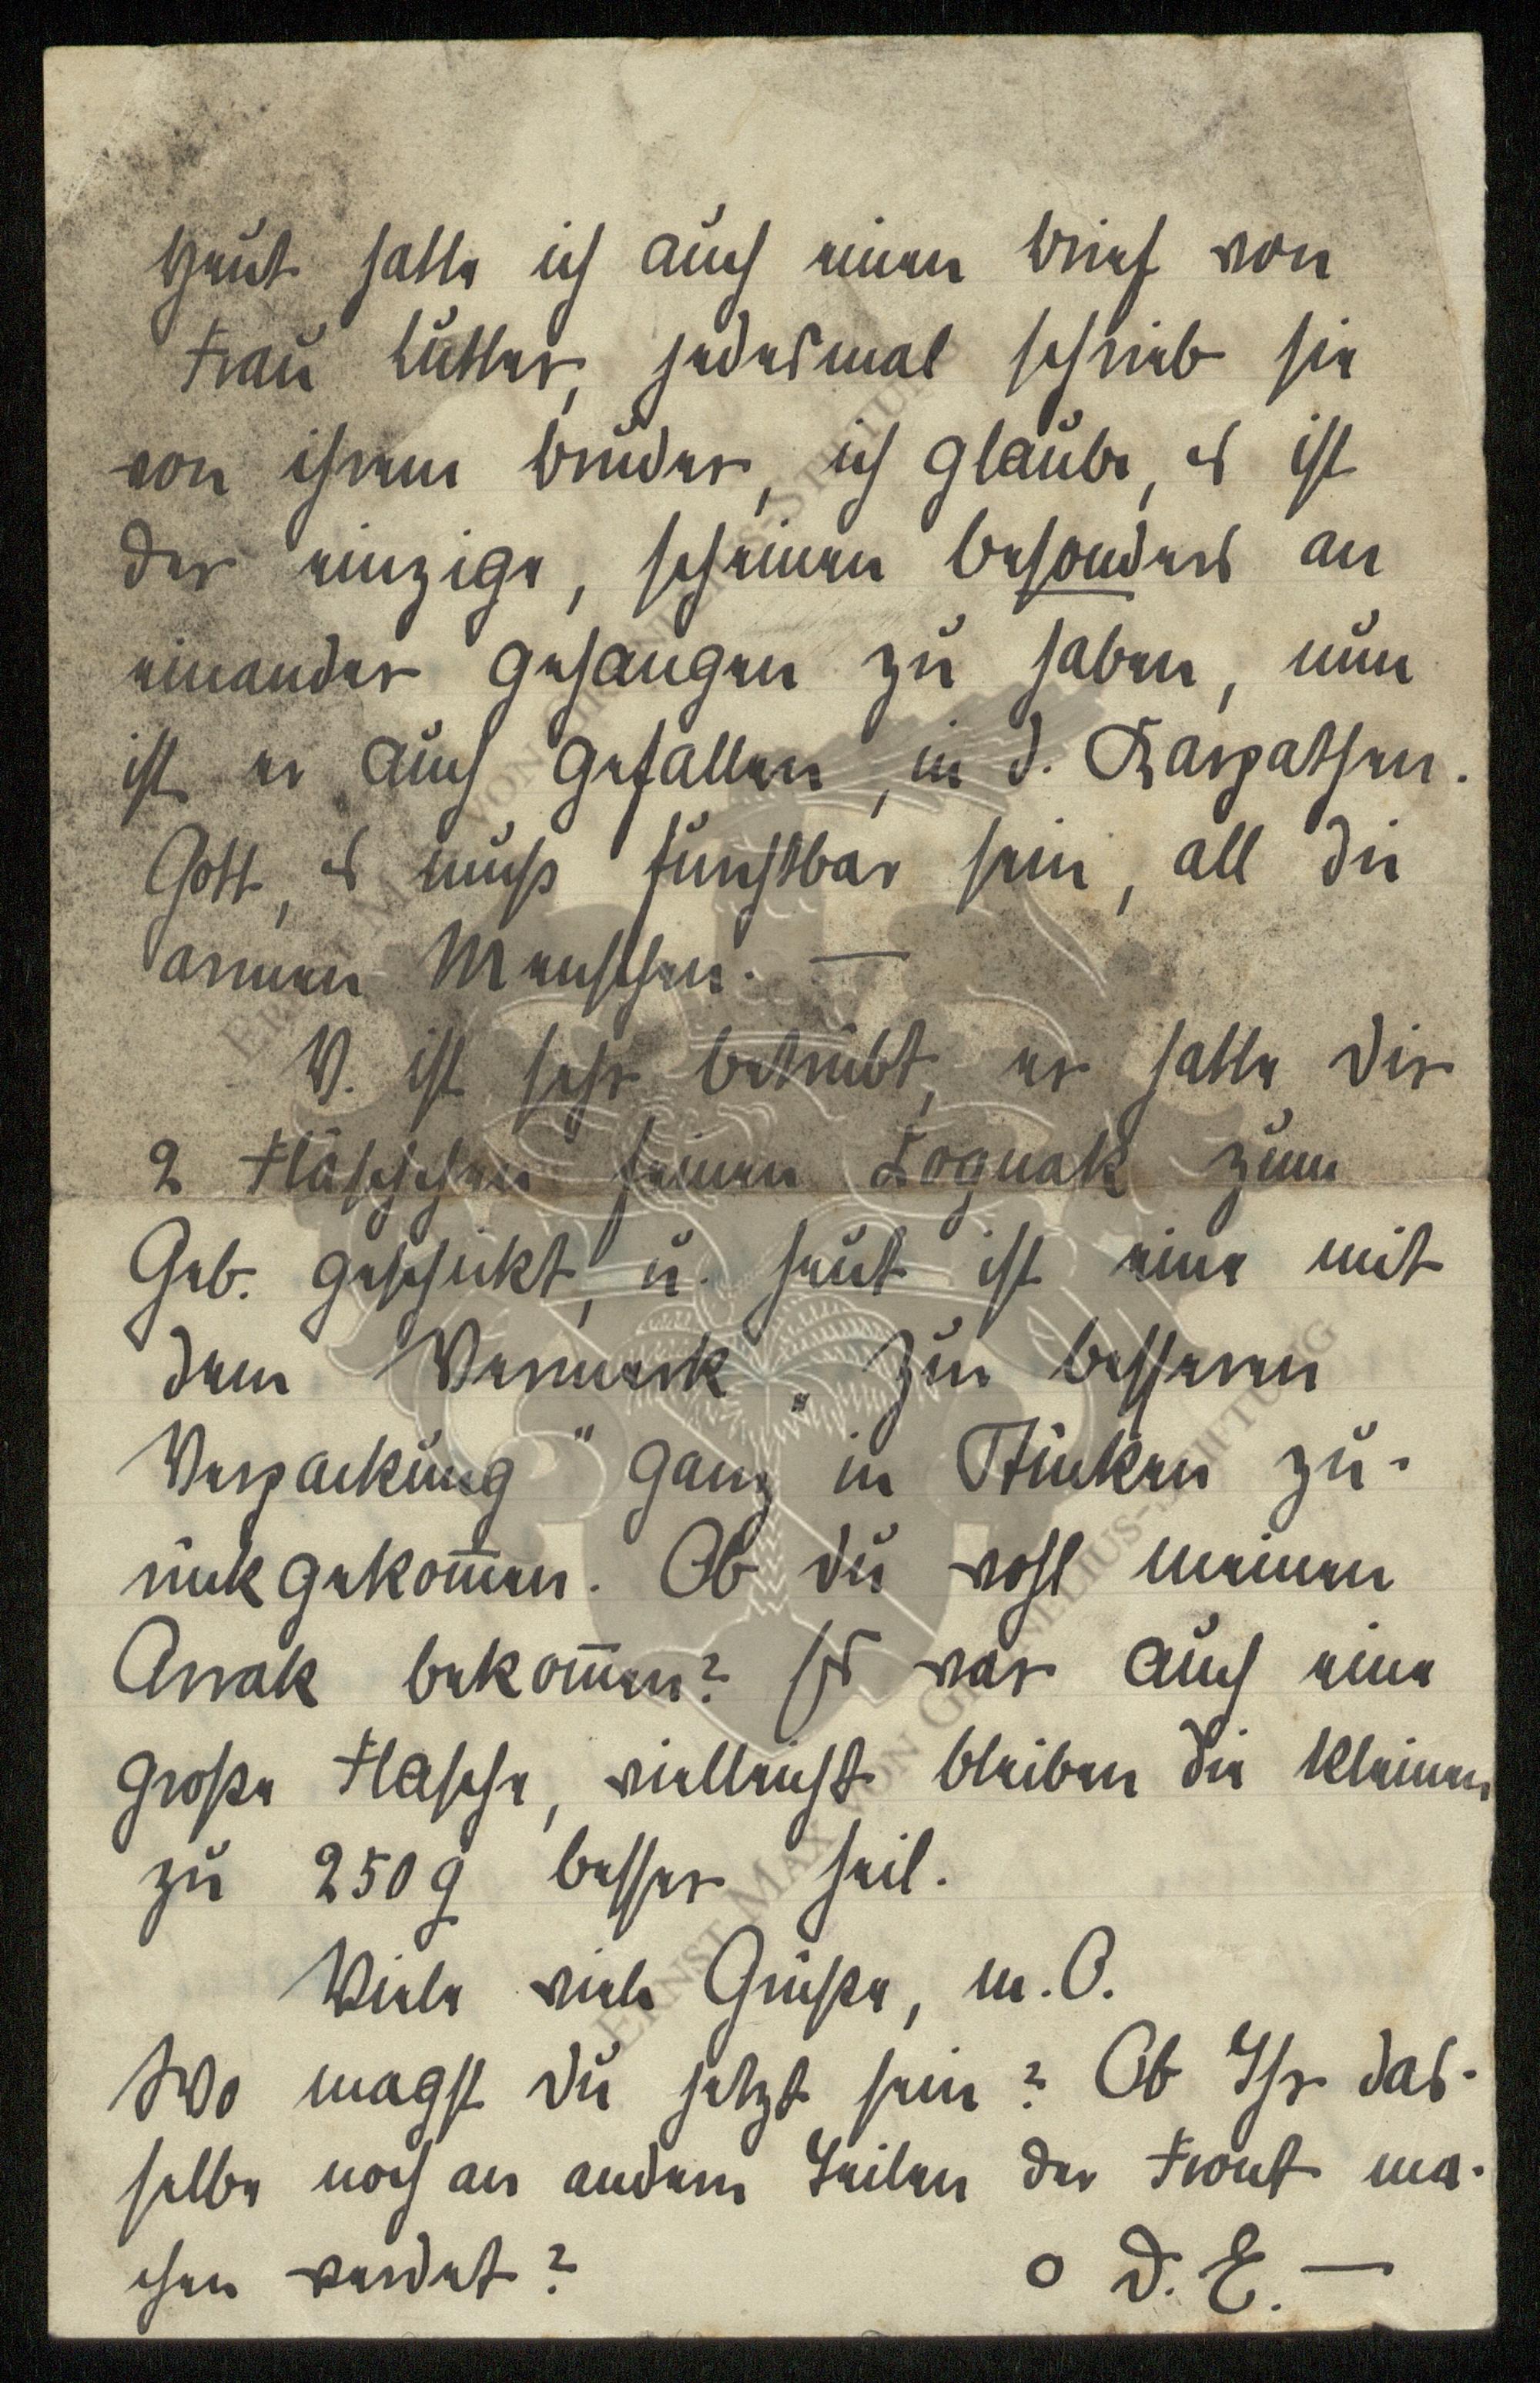 Heut hatte ich auch einen Brief von
Frau Lutter, jedesmal schrieb sie
von ihrem Bruder, ich glaube, es ist
der einzige, scheinen besonders an
einander gehangen zu haben, nun
ist er auch gefallen, in d. Karpathen.
Gott, es muss furchtbar sein, all die
armen Menschen. —
V. ist sehr betrübt, er hatte dir
2 Fläschchen feinen Cognak zum
Geb. geschickt, u. heut ist eine mit
dem Vermerk „Zur besseren
Verpackung" ganz in Stücken zu-
rückgekom̅en. Ob du wohl meinen
Arrak bekom̅en? Es war auch eine
große Flasche, vielleicht bleiben die kleinen
zu 250 g besser heil.
Viele viele Grüße, m. O.
Wo magst du jetzt sein? Ob Ihr das-
selbe noch an andern Teilen der Front ma-
chen werdet? o D. E. —
ERNST MAX VON GRUNELIUS-STIFTUNG
ERNST MAX VON GRUNELIUS-STIFTUNG